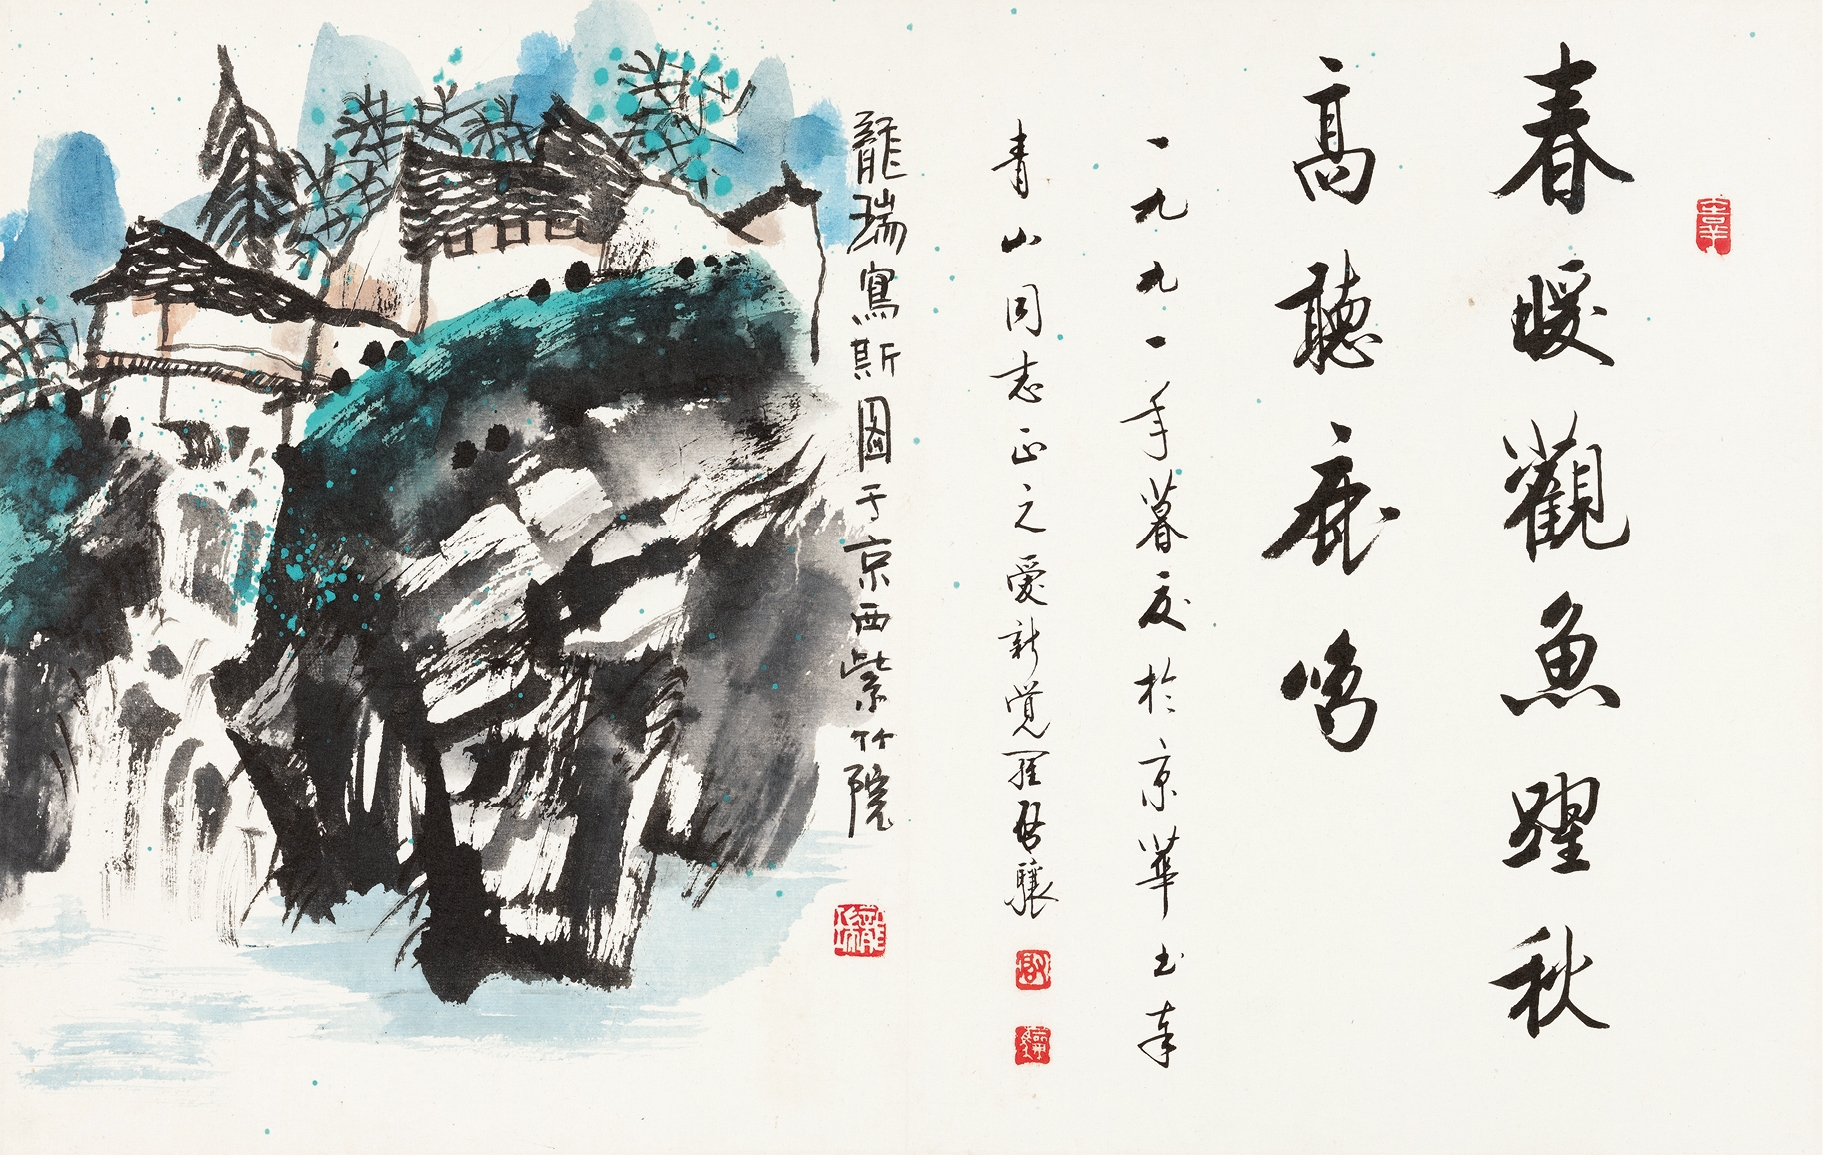 春暖觀魚躍秋
高聽鹿鳴
一九九一年暮夏於京華書奉
青山同志正之愛新覚羅啓驤
龍瑞寫斯圖于京西紫竹院
龍瑞